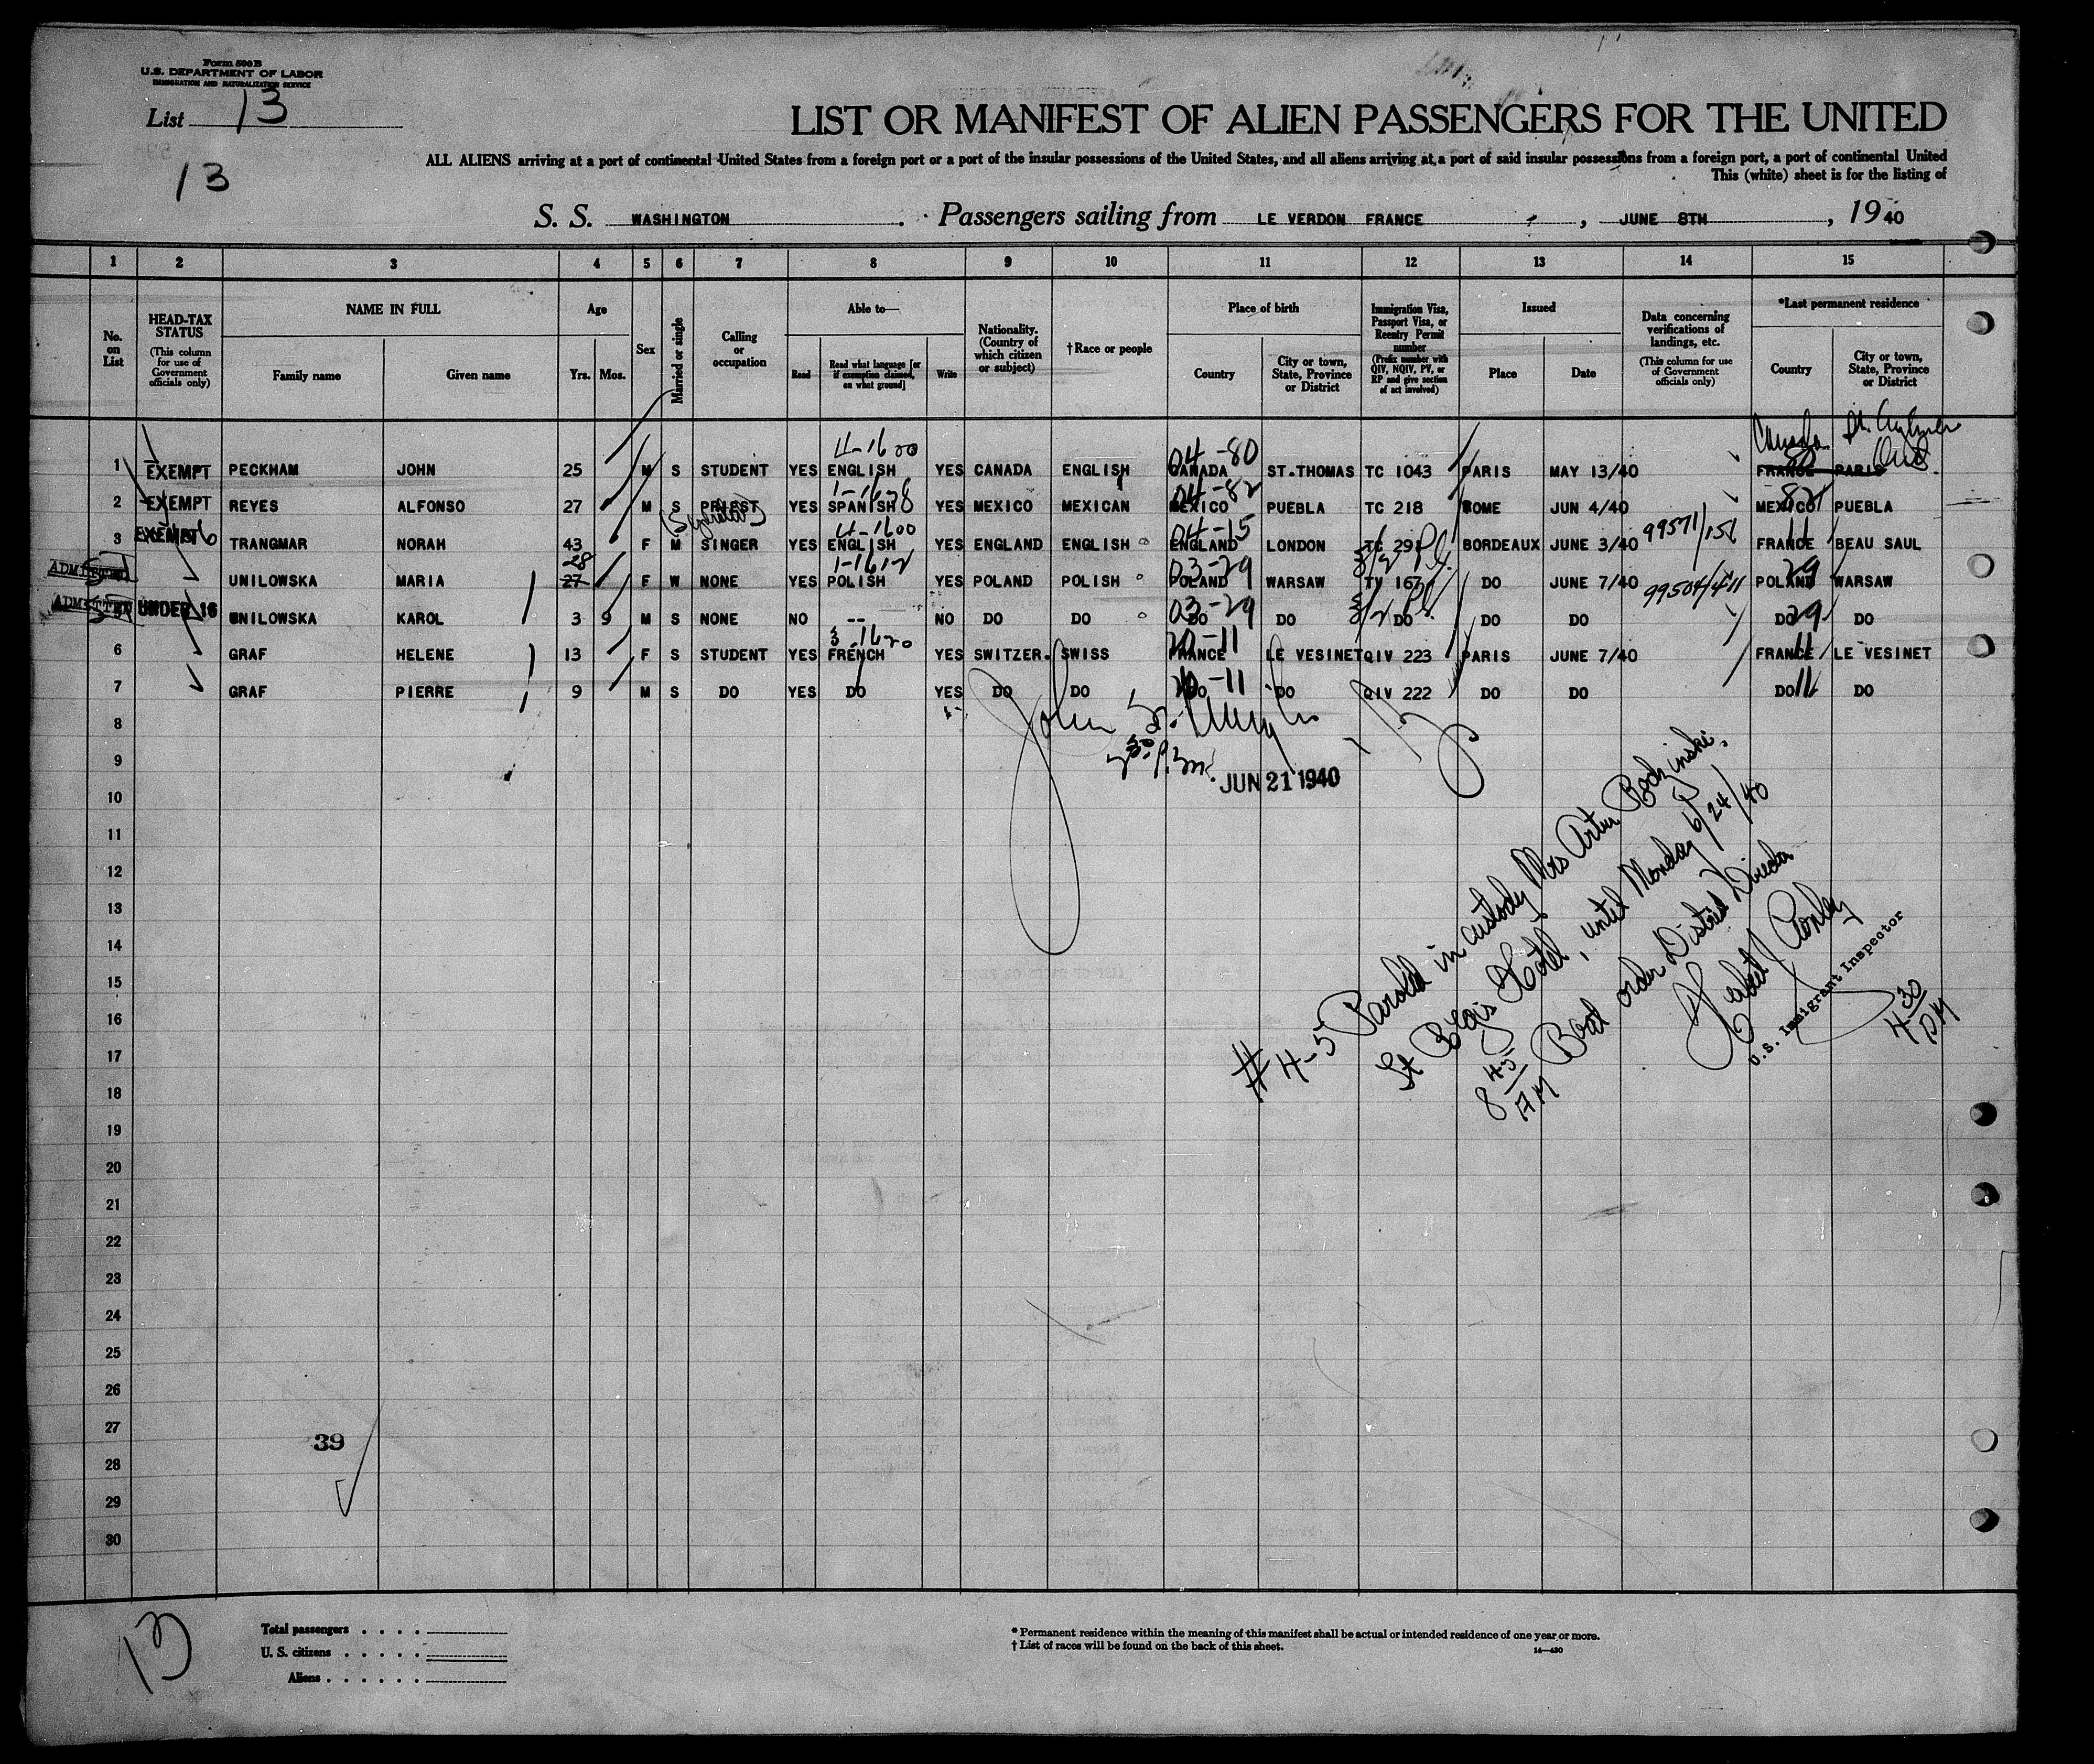 Form 500 B
U.S. DEPARTMENT OF LABOR
IMMIGRATION AND NATURALIZATION SERVICE
List 13
13
LIST OR MANIFEST OF ALIEN PASSENGERS FOR THE UNITED
ALL ALIENS arriving at a port of continental United States from a foreign port or a port of the insular possessions of the United States, and all aliens arriving at a port of said insular possessions from a foreign port, a port of continental United
This (white) sheet is for the listing of
S. S. WASHINGTON . Passengers sailing from LE VERDON FRANCE , JUNE 8TH , 1940
1 2 3 4 5 6 7 8 9 10 11 12 13 14 15
No. on List
HEAD-TAX STATUS (This column for use of Government officials only)
NAME IN FULL Family name Given name
Age Yrs. Mos.
Sex
Married or single
Calling or occupation
Able to— Read Read what language [or if exemption claimed, on what ground] Write
Nationality. (Country of which citizen or subject)
†Race or people
Place of birth Country City or town, State, Province or District
Immigration Visa, Passport Visa, or Reentry Permit number (Prefix number with QIV, NQIV, PV, or RP and give section of act involved)
Issued Place Date
Data concerning verifications of landings, etc. (This column for use of Government officials only)
*Last permanent residence Country City or town, State, Province or District
4-1600 04-80 Canada St. Ont.
1 EXEMPT PECKHAM JOHN 25 M S STUDENT YES ENGLISH YES CANADA ENGLISH CANADA ST.THOMAS TC 1043 PARIS MAY 13/40 FRANCE PARIS
1-1628 04-82 82
2 EXEMPT REYES ALFONSO 27 M S PRIEST YES SPANISH YES MEXICO MEXICAN MEXICO PUEBLA TC 218 ROME JUN 4/40 MEXICO PUEBLA
4-1600 04-15 99571/156 11
3 EXEMPT TRANGMAR NORAH 43 F M SINGER YES ENGLISH YES ENGLAND ENGLISH ENGLAND LONDON TC 291 BORDEAUX JUNE 3/40 FRANCE BEAU SAUL
28 1-1612 03-29 29
ADMITTED UNILOWSKA MARIA 27 F W NONE YES POLISH YES POLAND POLISH POLAND WARSAW TV 167 DO JUNE 7/40 99504/411 POLAND WARSAW
03-29 29
ADMITTED UNDER 16 UNILOWSKA KAROL 3 9 M S NONE NO -- NO DO DO DO DO DO DO DO DO DO
3 1620 20-11 11
6 GRAF HELENE 13 F S STUDENT YES FRENCH YES SWITZER. SWISS FRANCE LE VESINET QIV 223 PARIS JUNE 7/40 FRANCE LE VESINET
11
7 GRAF PIERRE 9 M S DO YES DO YES DO DO DO DO QIV 222 DO DO DO DO
8
John
9
JUN 21 1940
10
11
12
13
14
15
16
17
18
19
20
21
22
23
24
25
26
27
28
29
30
#4-5 Paroled in custody Mrs Artur Rodzinski,
St Regis Hotel, until Monday 6/24/40
8 45 AM Bond order District Director
U.S. Immigrant Inspector
4 30 PM
39
13
Total passengers . . . .
U. S. citizens . . . . .
Aliens . . . . . .
* Permanent residence within the meaning of this manifest shall be actual or intended residence of one year or more.
† List of races will be found on the back of this sheet.
14—480